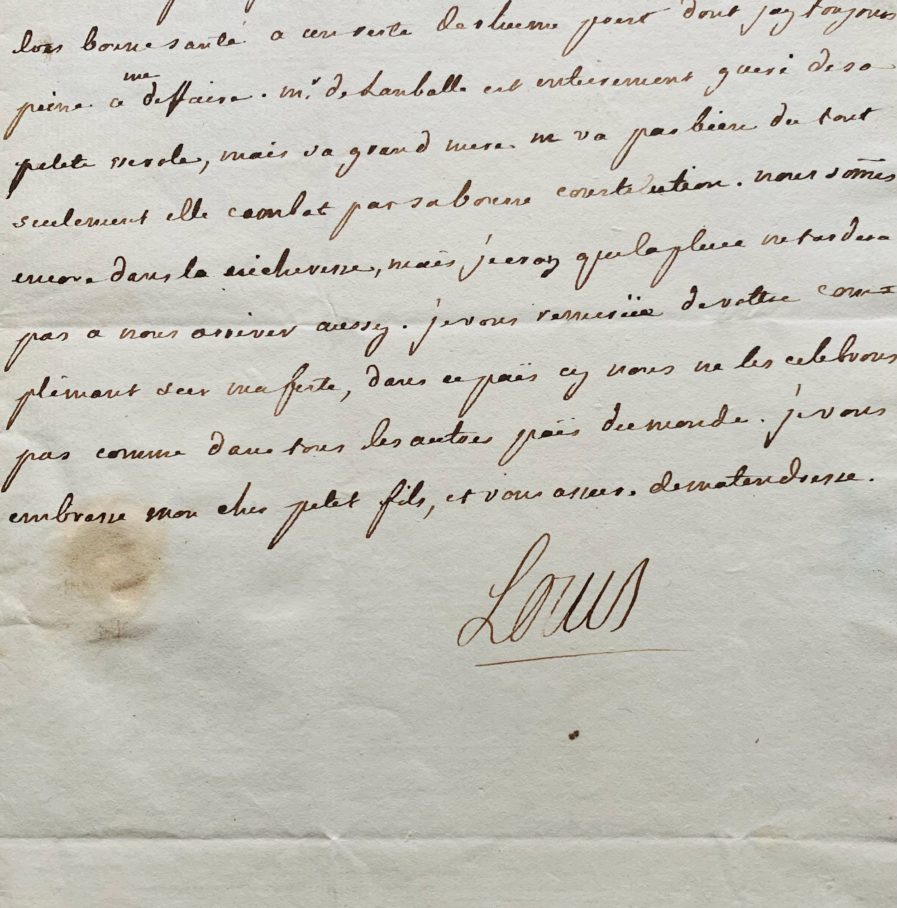 bonne santé a un reste de rhume pres dont jay toujours
peine a me deffaire. mr. de Lanballe est entierement gueri de sa
petite verole, mais sa grand mere ne va pas bien du tout
seulement elle combat par sa bonne constitution. nous som̃es
encore dans la secheresse, mais je croy que la pluie ne tardera
pas a nous arriver aussy. je vous remerciie de vostre com=
plément sur ma feste, dans ce païs cy nous ne les celebrons
pas comme dans tous les autres païs du monde. je vous
embrasse mon cher petit fils, et vous assure de ma tendresse.
Louis